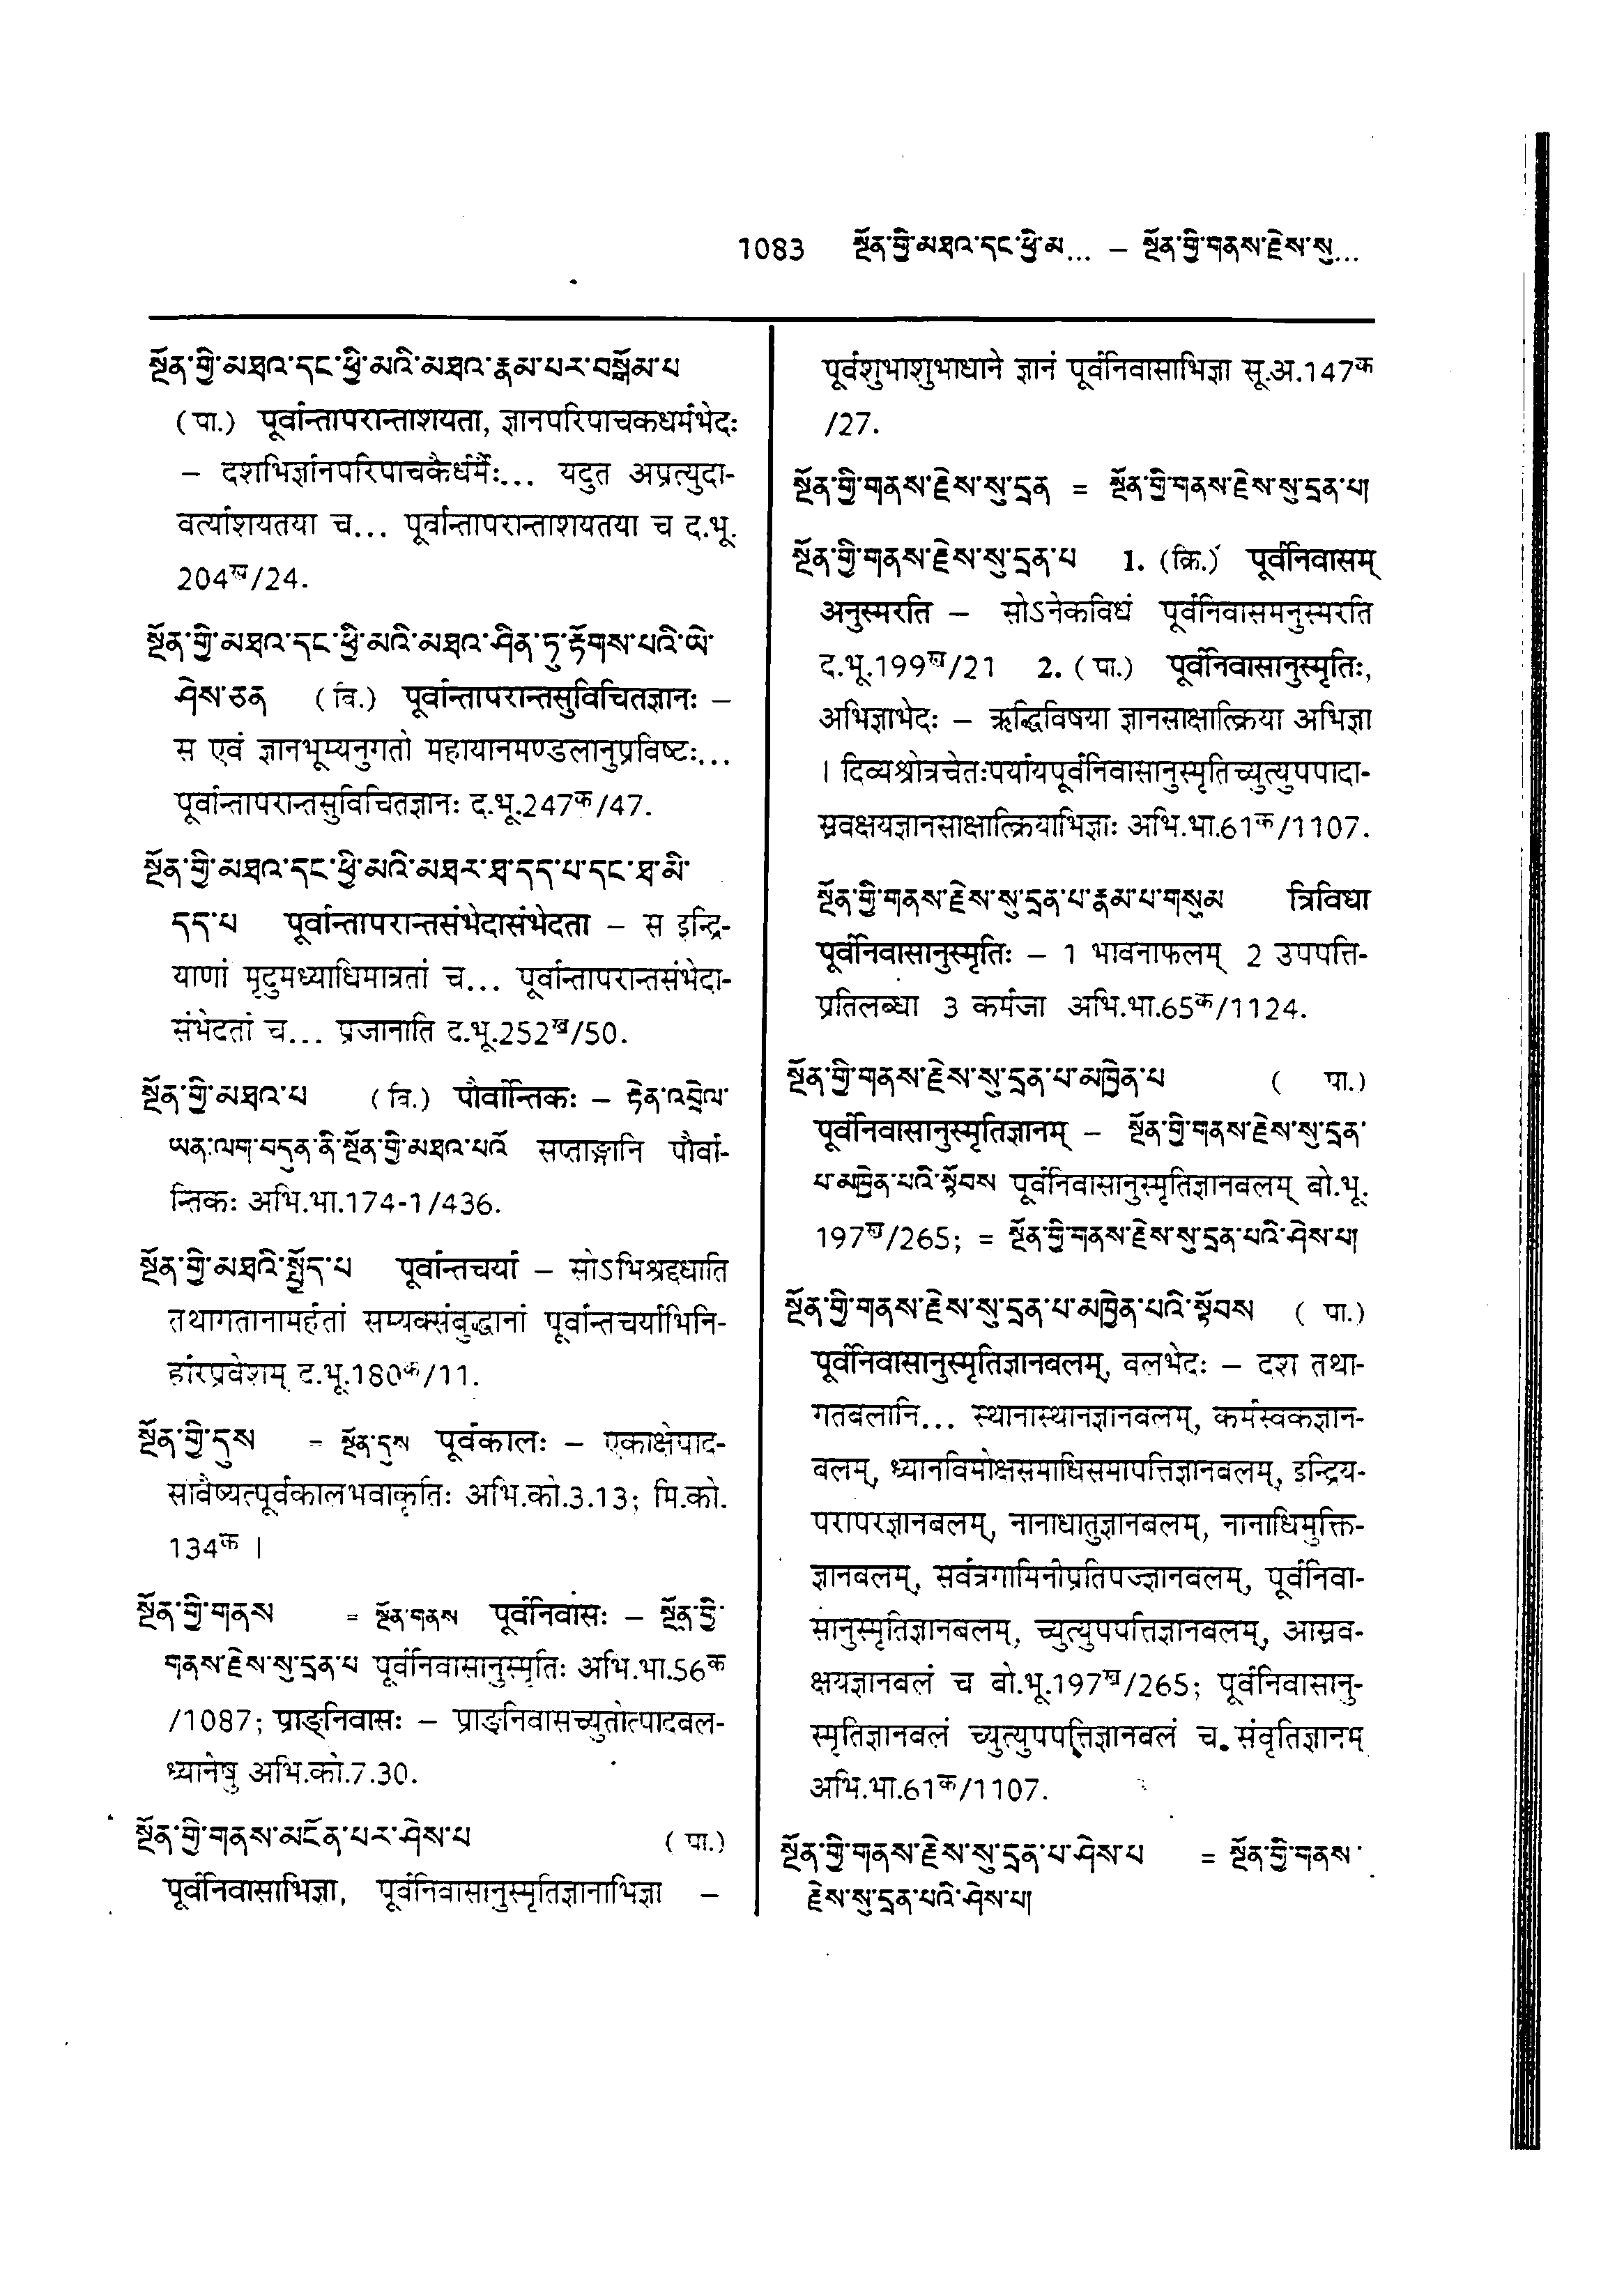 1083 སྔོན་གྱི་མཐའ་དང་ཕྱི་མ... – སྔོན་གྱི་གནས་རྗེས་སུ...
སྔོན་གྱི་མཐའ་དང་ཕྱི་མའི་མཐའ་རྣམ་པར་བསྒོམ་པ
(पा.) पूर्वान्तापरान्ताशयता, ज्ञानपरिपाचकधर्मभेदः
– दशभिर्ज्ञानपरिपाचकैर्धर्मैः... यदुत अप्रत्युदा-
वर्त्याशयतया च... पूर्वान्तापरान्ताशयतया च द.भू.
204ख/24.
སྔོན་གྱི་མཐའ་དང་ཕྱི་མའི་མཐའ་ཤིན་ཏུ་རྟོགས་པའི་ཡེ་
ཤེས་ཅན (वि.) पूर्वान्तापरान्तसुविचितज्ञानः –
स एवं ज्ञानभूम्यनुगतो महायानमण्डलानुप्रविष्टः...
पूर्वान्तापरान्तसुविचितज्ञानः द.भू.247क/47.
སྔོན་གྱི་མཐའ་དང་ཕྱི་མའི་མཐར་ཐ་དད་པ་དང་ཐ་མི་
དད་པ पूर्वान्तापरान्तसंभेदासंभेदता – स इन्द्रि-
याणां मृदुमध्याधिमात्रतां च... पूर्वान्तापरान्तसंभेदा-
संभेदतां च... प्रजानाति द.भू.252ख/50.
སྔོན་གྱི་མཐའ་པ (वि.) पौर्वान्तिकः – རྟེན་འབྲེལ་
ཡན་ལག་བདུན་ནི་སྔོན་གྱི་མཐའ་པའོ सप्ताङ्गानि पौर्वा-
न्तिकः अभि.भा.174-1/436.
སྔོན་གྱི་མཐའི་སྤྱོད་པ पूर्वान्तचर्या – सोऽभिश्रद्दधाति
तथागतानामर्हतां सम्यक्संबुद्धानां पूर्वान्तचर्याभिनि-
र्हारप्रवेशम् द.भू.180क/11.
སྔོན་གྱི་དུས = སྔོན་དུས पूर्वकालः – एकाक्षेपाद-
सावैष्यत्पूर्वकालभवाकृतिः अभि.को.3.13; मि.को.
134क ।
སྔོན་གྱི་གནས = སྔོན་གནས पूर्वनिवासः – སྔོན་གྱི་
གནས་རྗེས་སུ་དྲན་པ पूर्वनिवासानुस्मृतिः अभि.भा.56क
/1087; प्राङ्निवासः – प्राङ्निवासच्युतोत्पादबल-
ध्यानेषु अभि.को.7.30.
སྔོན་གྱི་གནས་མངོན་པར་ཤེས་པ (पा.)
पूर्वनिवासाभिज्ञा, पूर्वनिवासानुस्मृतिज्ञानाभिज्ञा –
पूर्वशुभाशुभाधाने ज्ञानं पूर्वनिवासाभिज्ञा सू.अ.147क
/27.
སྔོན་གྱི་གནས་རྗེས་སུ་དྲན = སྔོན་གྱི་གནས་རྗེས་སུ་དྲན་པ།
སྔོན་གྱི་གནས་རྗེས་སུ་དྲན་པ 1. (क्रि.) पूर्वनिवासम्
अनुस्मरति – सोऽनेकविधं पूर्वनिवासमनुस्मरति
द.भू.199ख/21 2. (पा.) पूर्वनिवासानुस्मृतिः,
अभिज्ञाभेदः – ऋद्धिविषया ज्ञानसाक्षात्क्रिया अभिज्ञा
। दिव्यश्रोत्रचेतःपर्यायपूर्वनिवासानुस्मृतिच्युत्युपपादा-
स्रवक्षयज्ञानसाक्षात्क्रियाभिज्ञाः अभि.भा.61क/1107.
སྔོན་གྱི་གནས་རྗེས་སུ་དྲན་པ་རྣམ་པ་གསུམ त्रिविधा
पूर्वनिवासानुस्मृतिः – 1 भावनाफलम् 2 उपपत्ति-
प्रतिलब्धा 3 कर्मजा अभि.भा.65क/1124.
སྔོན་གྱི་གནས་རྗེས་སུ་དྲན་པ་མཁྱེན་པ ( पा.)
पूर्वनिवासानुस्मृतिज्ञानम् – སྔོན་གྱི་གནས་རྗེས་སུ་དྲན་
པ་མཁྱེན་པའི་སྟོབས पूर्वनिवासानुस्मृतिज्ञानबलम् बो.भू.
197ख/265; = སྔོན་གྱི་གནས་རྗེས་སུ་དྲན་པའི་ཤེས་པ།
སྔོན་གྱི་གནས་རྗེས་སུ་དྲན་པ་མཁྱེན་པའི་སྟོབས ( पा.)
पूर्वनिवासानुस्मृतिज्ञानबलम्, बलभेदः – दश तथा-
गतबलानि... स्थानास्थानज्ञानबलम्, कर्मस्वकज्ञान-
बलम्, ध्यानविमोक्षसमाधिसमापत्तिज्ञानबलम्, इन्द्रिय-
परापरज्ञानबलम्, नानाधातुज्ञानबलम्, नानाधिमुक्ति-
ज्ञानबलम्, सर्वत्रगामिनीप्रतिपज्ज्ञानबलम्, पूर्वनिवा-
सानुस्मृतिज्ञानबलम्, च्युत्युपपत्तिज्ञानबलम्, आस्रव-
क्षयज्ञानबलं च बो.भू.197ख/265; पूर्वनिवासानु-
स्मृतिज्ञानबलं च्युत्युपपत्तिज्ञानबलं च. संवृतिज्ञानम्
अभि.भा.61क/1107.
སྔོན་གྱི་གནས་རྗེས་སུ་དྲན་པ་ཤེས་པ = སྔོན་གྱི་གནས་
རྗེས་སུ་དྲན་པའི་ཤེས་པ།